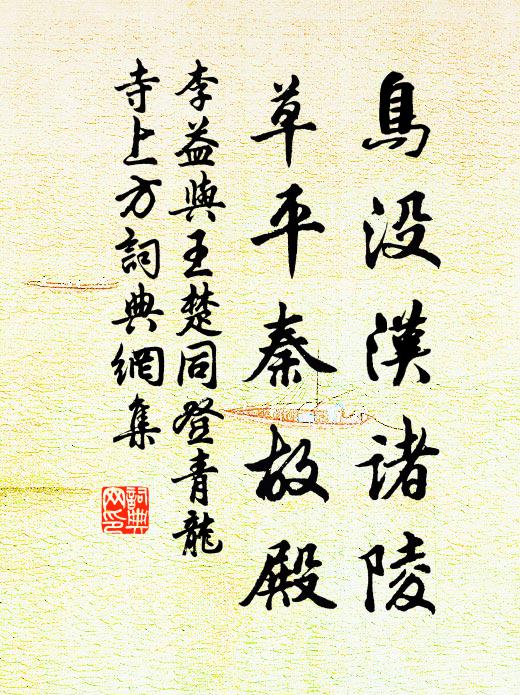 鳥没漢諸陵
草平秦故殿
李益與王楚同登青龍
寺上方詞典網集
詞典
网印